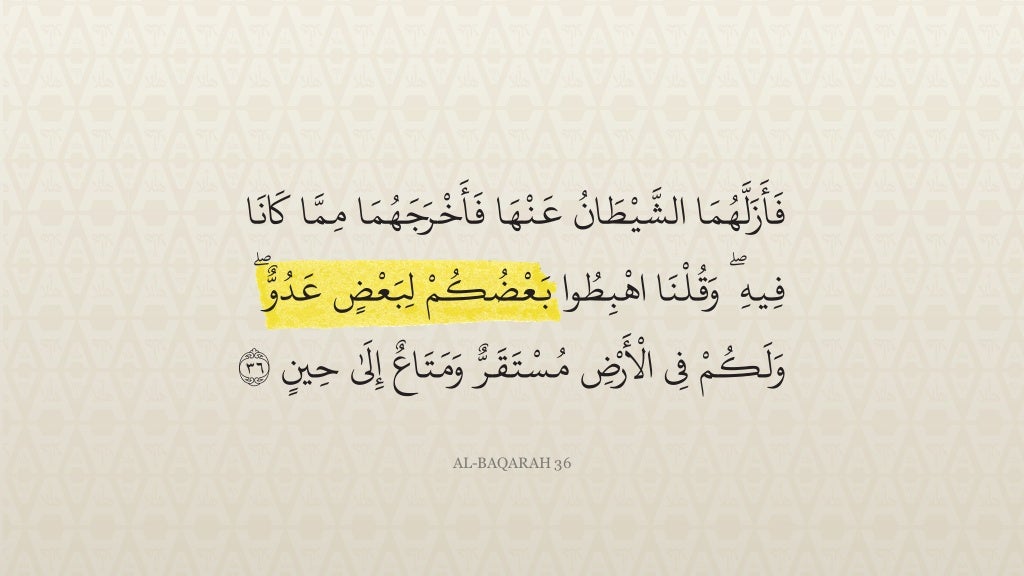 فَأَزَلَّهُمَا الشَّيْطَانُ عَنْهَا فَأَخْرَجَهُمَا مِمَّا كَانَا
فِيهِ ۖ وَقُلْنَا اهْبِطُوا بَعْضُكُمْ لِبَعْضٍ عَدُوٌّ ۖ
وَلَكُمْ فِي الْأَرْضِ مُسْتَقَرٌّ وَمَتَاعٌ إِلَىٰ حِينٍ ۝٣٦
AL-BAQARAH 36